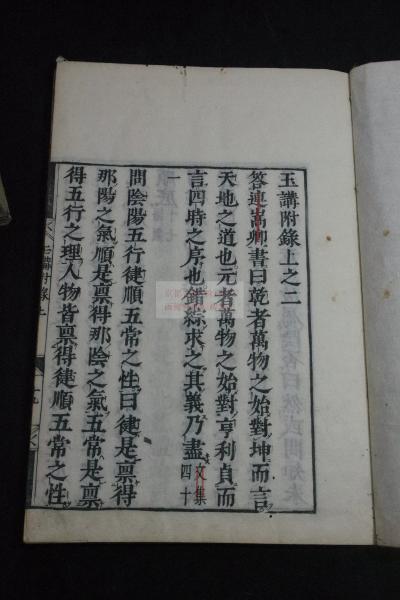 玉講附錄上之二
答連嵩卿書曰乾者萬物之始對坤而言
天地之道也元者萬物之始對亨利貞而
言四時之序也錯綜求之其義乃盡文集四十
一
問陰陽五行健順五常之性曰健是稟得
那陽之氣順是稟得那陰之氣五常是稟
得五行之理人物皆稟得健順五常之性
玉講附錄上